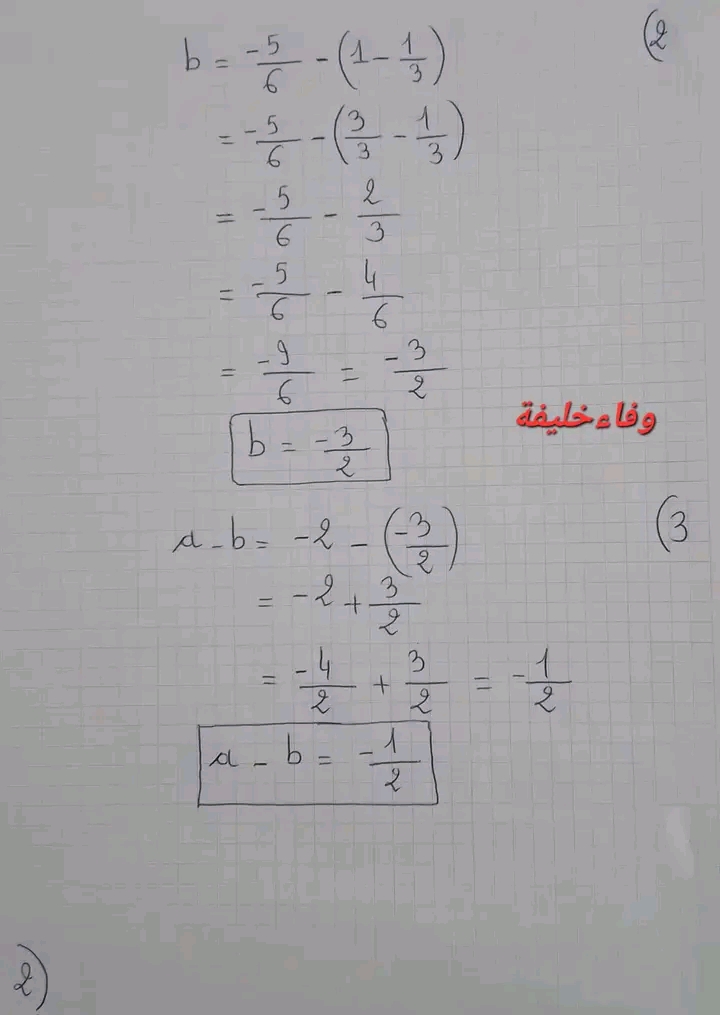 2)
b = -5/6 - (1 - 1/3)
= -5/6 - (3/3 - 1/3)
= -5/6 - 2/3
= -5/6 - 4/6
= -9/6 = -3/2
وفاء خليفة
b = -3/2
3)
a - b = -2 - (-3/2)
= -2 + 3/2
= -4/2 + 3/2 = -1/2
a - b = -1/2
2)